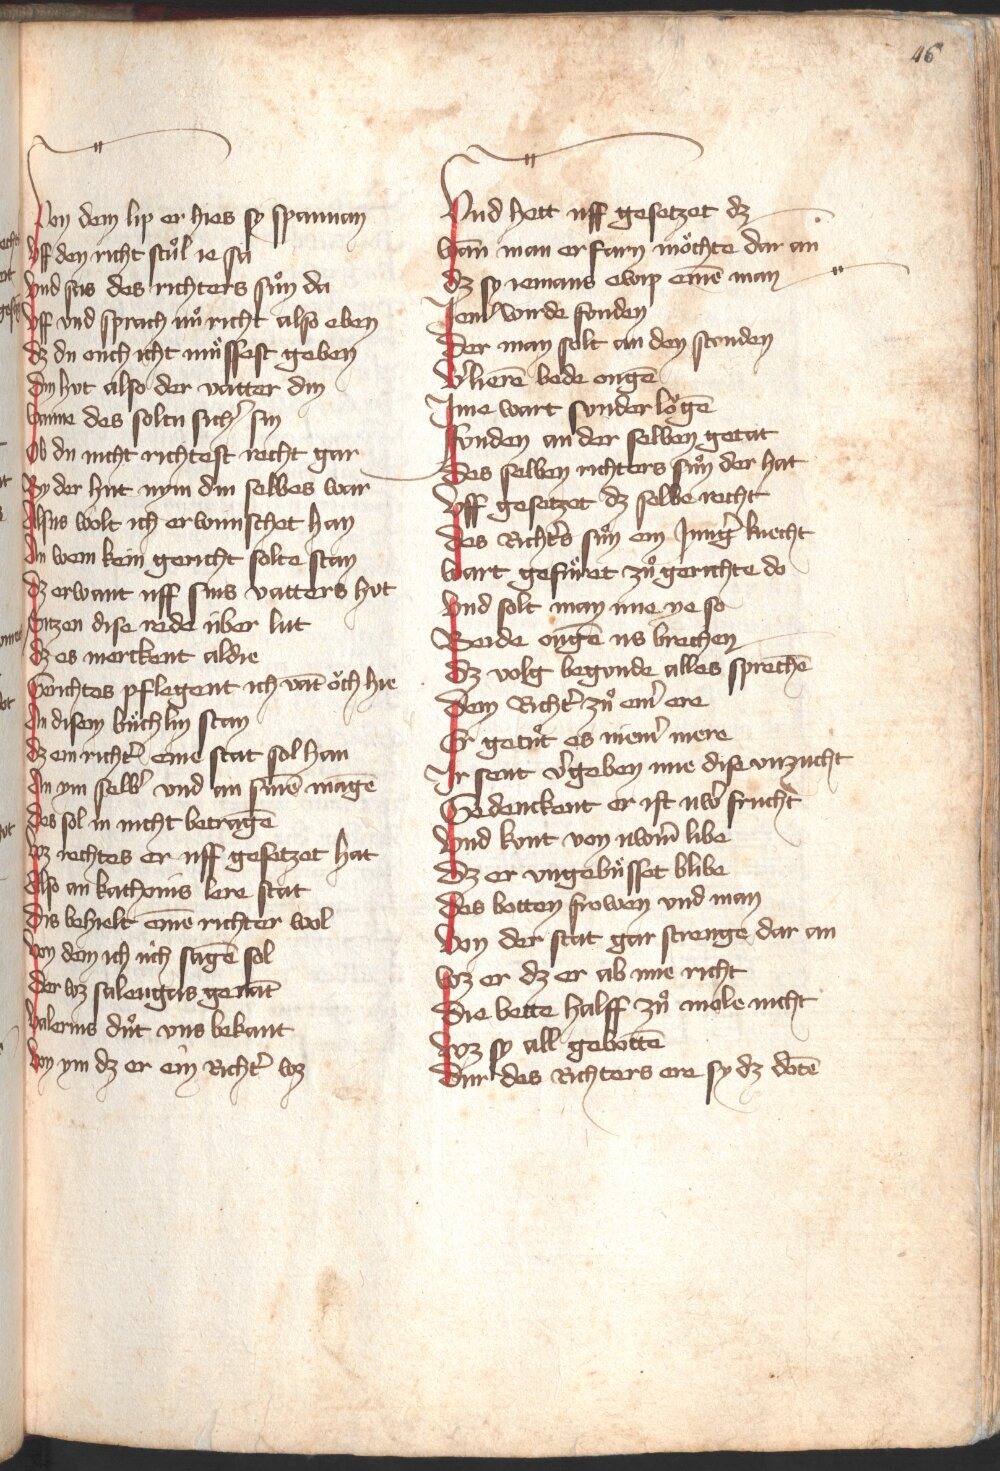 46
Von dem lip er hies sy spannan
Vff den richt stuͦl ie sa
Vnd sas des richters suͦn da
Vff vnd sprach nuͦ richt also eben
Dz du ouch icht muͤssest geben
Din hvt also der vatter din
Wanne des soltu sichˀ sin
Ob du nicht richtest recht gar
By der hut nym din selbes war
Alsus wolt ich erwunschet han
In wem kein gericht solte stan
Dz erwant uff sins vatters hvt
Sitzen dise rede úber lut
Dz es merckent aldie
Gerichtes pflegent ich vāt oͤch hie
In disem buͤchlin stan
Dz ein richtˀ eine stat sol han
An ym selbˀ vnd an sinē magē
Des sol in nicht betragē
Wz rechtes er uff gesetzet hat
Also an kathonis lere stat
Dis behielt einē richter wol
Von dem ich úch sagē sol
Der wz salengus genāt
Valerius duͦt vns bekant
Von ym dz er ein Richtˀ wz
Vnd hett uff gesetzet dz
Wan̄ man erfarn moͤchte dar an
Dz sy iemans ewip einē man
Jenˀ wurde fonden
Der man solt an den stonden
Vˀlierē bede ougē
Ime wart sunder loͤgē
Fonden an der selben getat
Des selben richters suͦn der hat
Vff gesetzet dz selbe recht
Des Richtˀs suͦn ein Jungˀ knecht
Wart gefuͤret zuͦ gerichte do
Vnd solt man ime ye so
Beide ougē us brechen
Dz volg begonde alles sprechē
Dem Richtˀ zuͦ einˀ ere
Er getuͦt es niemˀ mere
Ir sent vˀgeben ime dise vnzucht
Gedenckent er ist uwˀ frucht
Vnd komt von uwmˀ libe
Dz er vngebuͤsset blibe
Des botten frowen vnd man
Von der stat gar strenge dar an
Wz er dz er ab ime richt
Die bette halff zuͦ mole nicht
Wz sy all gebottē
Dur des Richters ere sy dz dotē